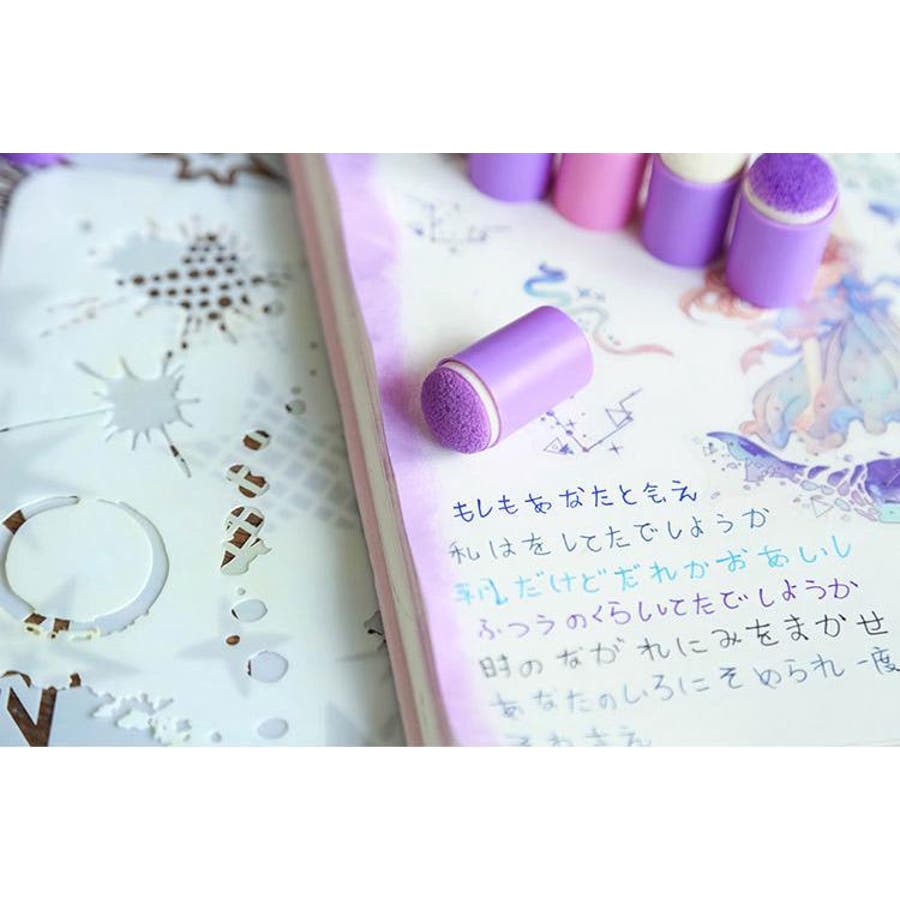 もしもあなたと会え
私はをしてたでしようか
私だけどだれかおあいし
ふつうのくらしてたでしようか
時のながれにみをまかせ
あなたのしろにそめられ一度
それさえ